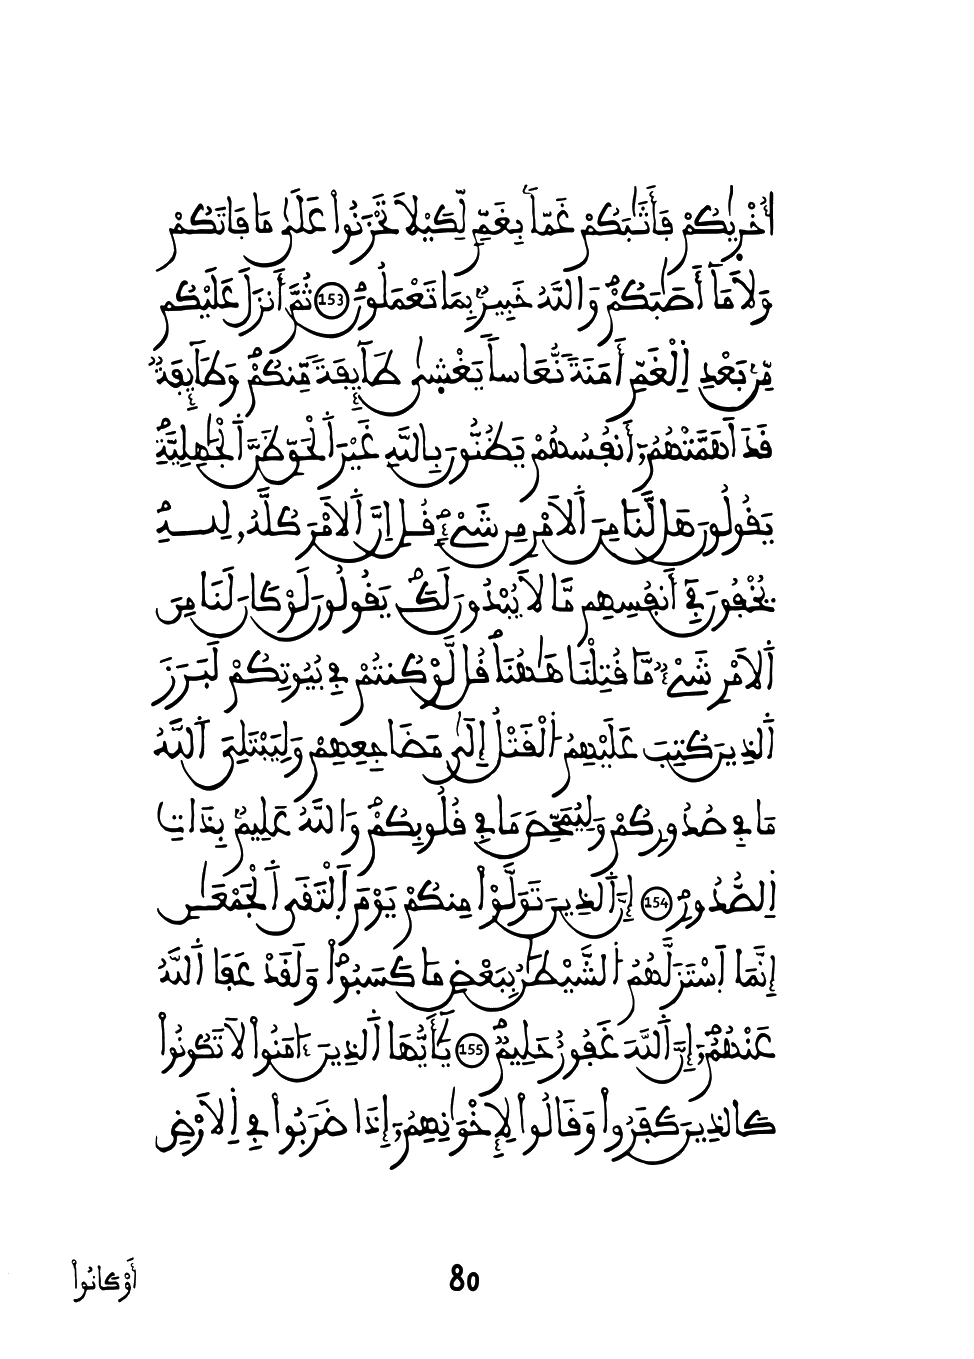 أُخْرٜيٰكُمْ فَأَثَٰبَكُمْ غَمّاَۢ بِغَمّٖ لِّكَيْلَا تَحْزَنُواْ عَلَيٰ مَا فَاتَكُمْ
وَلَا مَآ أَصَٰبَكُمْۖ وَاللَّهُ خَبِيرُۢ بِمَا تَعْمَلُونَۖ 153 ثُمَّ أَنزَلَ عَلَيْكُم
مِّنۢ بَعْدِ اِ۬لْغَمِّ أَمَنَةٗ نُّعَاساٗ يَغْشٜيٰ طَآئِفَةٗ مِّنكُمْۖ وَطَآئِفَةٞ
قَدَ اَهَمَّتْهُمُۥٓ أَنفُسُهُمْ يَظُنُّونَ بِاللَّهِ غَيْرَ اَ۬لْحَقِّ ظَنَّ اَ۬لْجَٰهِلِيَّةِۖ
يَقُولُونَ هَل لَّنَا مِنَ اَ۬لَامْرِ مِن شَےْءٖۖ قُلِ اِنَّ اَ۬لَامْرَ كُلَّهُۥ لِلهِۖ
يُخْفُونَ فِےٓ أَنفُسِهِم مَّا لَا يُبْدُونَ لَكَۖ يَقُولُونَ لَوْ كَانَ لَنَا مِنَ
اَ۬لَامْرِ شَےْءٞ مَّا قُتِلْنَا هَٰهُنَاۖ قُل لَّوْ كُنتُمْ فِے بُيُوتِكُمْ لَبَرَزَ
اَ۬لذِينَ كُتِبَ عَلَيْهِمُ اُ۬لْقَتْلُ إِلَيٰ مَضَاجِعِهِمْ وَلِيَبْتَلِيَ اَ۬للَّهُ
مَا فِے صُدُورِكُمْ وَلِيُمَحِّصَ مَا فِے قُلُوبِكُمْۖ وَاللَّهُ عَلِيمُۢ بِذَاتِ
اِ۬لصُّدُورِۖ 154 إِنَّ اَ۬لذِينَ تَوَلَّوْاْ مِنكُمْ يَوْمَ اَ۪لْتَقَي اَ۬لْجَمْعَٰنِ
إِنَّمَا اَ۪سْتَزَلَّهُمُ اُ۬لشَّيْطَٰنُ بِبَعْضِ مَا كَسَبُواْۖ وَلَقَدْ عَفَا اَ۬للَّهُ
عَنْهُمُۥٓۖ إِنَّ اَ۬للَّهَ غَفُورٌ حَلِيمٞۖ 155 يَٰٓأَيُّهَا اَ۬لذِينَ ءَامَنُواْ لَا تَكُونُواْ
كَالذِينَ كَفَرُواْ وَقَالُواْ لِإِخْوَٰنِهِمُۥٓ إِذَا ضَرَبُواْ فِے اِ۬لَارْضِ
أَوْ كَانُواْ
80